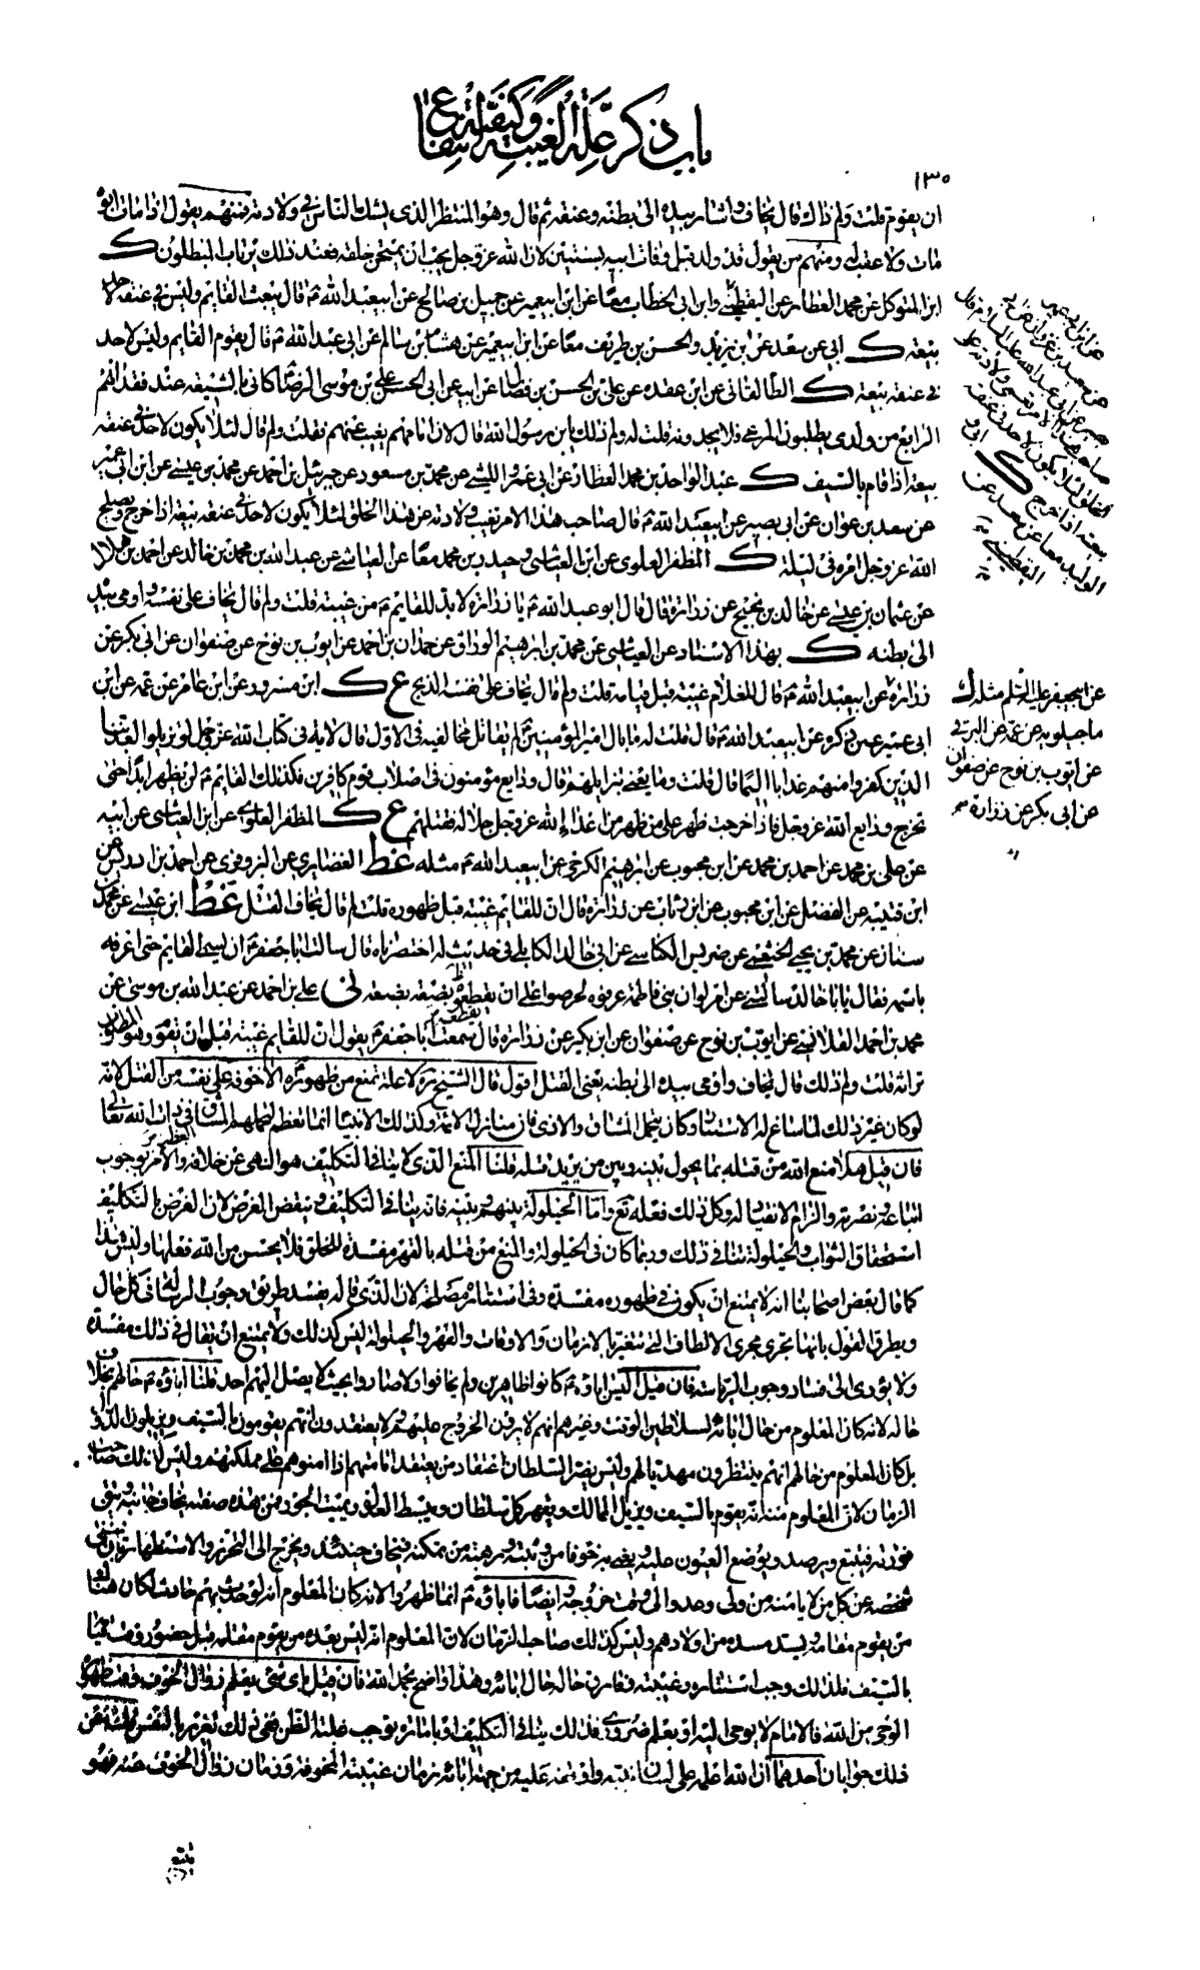 باب ذكر علة الغيبة وكيفية انتفاع
١٣٠
ان يقوم قلت ولم ذاك قال يخاف واشار بيده الى بطنه وعنقه ثم قال وهو المنتظر الذى يشك الناس فى ولادته فمنهم من يقول اذا مات ابوه
مات ولا عقب له ومنهم من يقول قد ولد قبل وفات ابيه بسنتين لان الله عز وجل يحب ان يمتحن خلقه فعند ذلك يرتاب المبطلون ك
ابن المتوكل عن محمد العطار عن اليقطينى وابن ابى الخطاب معا عن ابن ابيعمير عن جميل بن صالح عن ابيعبد الله ع قال يبعث القايم وليس فى عنقه لاحد
بيعة ك ابى عن سعد عن ابن يزيد والحسن بن طريف معا عن ابن ابيعمير عن هشام بن سالم عن ابى عبد الله ع قال يقوم القايم وليس لاحد
فى عنقه بيعة ك الطالقانى عن ابن عقده عن على بن الحسن بن فضال عن ابيه عن ابى الحسن على بن موسى الرضا كانى بالشيعة عند فقدانهم
الرابع من ولدى يطلبون المرعى فلا يجدونه قلت له ولم ذلك يابن رسول الله قال لان امامهم يغيب عنهم فقلت ولم قال لئلا يكون لاحد فى عنقه
بيعة اذا قام بالسيف ك عبد الواحد بن محمد العطار عن ابى عمرو الليثى عن محمد بن مسعود عن جبرئيل بن احمد عن محمد بن عيسى عن ابن ابى عمير
عن سعيد بن غزوان عن ابى بصير عن ابيعبد الله ع قال صاحب هذا الامر تغيب ولادته عن هذا الخلق لئلا يكون لاحد فى عنقه بيعة اذا خرج ويصلح
الله عز وجل امره فى ليلة ك المظفر العلوى عن ابن العياشى وحيدر بن محمد معا عن العياشى عن عبد الله بن محمد بن خالد عن احمد بن هلال
عن عثمان بن عيسى عن خالد بن نجيح عن زرارة قال قال ابو عبد الله ع يا زرارة لابد للقايم ع من غيبة قلت ولم قال يخاف على نفسه واومى بيده
الى بطنه ك بهذا الاسناد عن العياشى عن محمد بن ابرهيم الوراق عن حمدان بن احمد عن ايوب بن نوح عن صفوان عن ابى بكر عن
زرارة عن ابيعبد الله ع قال للغلام غيبة قبل قيامه قلت ولم قال يخاف على نفسه الذبح ع ك ابن مسرور عن ابن عامر عن عمه عن ابن
ابى عمير عمن ذكره عن ابيعبد الله ع قال قلت له ما بال امير المؤمنين لم يقاتل مخالفيه فى الاول قال لاية فى كتاب الله عز وجل لو تزيلوا لعذبنا
الذين كفروا منهم عذابا اليما قال قلت وما يعنى بتزايلهم قال ودايع مؤمنون فى اصلاب قوم كافرين فكذلك القايم ع لن يظهر ابدا حتى
تخرج ودايع الله عز وجل فاذا خرجت ظهر على من ظهر من اعداء الله عز وجل جلاله فقتلهم ع ك المظفر العلوى عن ابن العياشى عن ابيه
عن على بن محمد عن احمد بن محمد عن ابن محبوب عن ابرهيم الكرخى عن ابيعبد الله ع مثله غط الغضايرى عن البزوفرى عن احمد بن ادريس عن
ابن قتيبه عن الفضل عن ابن محبوب عن ابن رئاب عن زرارة قال ان للقايم غيبة قبل ظهوره قلت لم قال يخاف القتل غط ابن عيسى عن محمد بن
سنان عن محمد بن يحيى الخثعمى عن ضريس الكناسى عن ابى خالد الكابلى فى حديث له اختصرناه قال سالت ابا جعفر ع ان يسمى القايم حتى اعرفه
باسمه فقال يا با خالد سالتنى عن امر لو ان بنى فاطمة عرفوه لحرصوا على ان يقطعوه بضعة بضعة نى على بن احمد عن عبد الله بن موسى عن
محمد بن احمد القلانسى عن ايوب بن نوح عن صفوان عن ابن بكير عن زرارة قال سمعت ابا جعفر ع يقول ان للقايم غيبة قبل ان يقوم وهو المطلوب
تراثه قلت ولم ذلك قال يخاف واومى بيده الى بطنه يعنى القتل اقول قال الشيخ ره لا علة تمنع من ظهوره الا خوفه على نفسه من القتل لانه
لو كان غير ذلك لما ساغ له الاستتار وكان يتحمل المشاق والاذى فان منازل الائمة وكذلك الانبيا انما تعظم لتحملهم المشاق العظيمة فى ذات الله تعالى
فان قيل هلا منع الله من قتله بما يحول بينه وبين من يريد قتله قلنا المنع الذى لا ينافى التكليف هو النهى عن خلافه والامر بوجوب
اتباعه ونصرته والزام الانقياد له وكل ذلك فعله تع واما الحيلولة بينهم وبينه فانه ينافى التكليف وينقض الغرض لان الغرض بالتكليف
استحقاق الثواب والحيلولة تنافى ذلك وربما كان فى الحيلولة والمنع من قتله بالقهر مفسدة للخلق فلا يحسن من الله فعلها وليس هذا
كما قال بعض اصحابنا انه لا يمتنع ان يكون فى ظهوره مفسدة وفى استتاره مصلحة لان الذى قاله يفسد طريق وجوب الرسالة فى كل حال
ويطرق القول بانها تجرى مجرى الالطاف التى تتغير بالازمان والاوقات والقهر والحيلولة ليس كذلك ولا يمتنع ان يقال فى ذلك مفسدة
ولا يؤدى الى فساد وجوب الرياسة فان قيل اليس اباؤه ع كانوا ظاهرين ولم يخافوا ولا صاروا بحيث لا يصل اليهم احد قلنا اباؤه ع حالهم بخلاف
حاله لانه كان المعلوم من حال ابائه لسلاطين الوقت وغيرهم انهم لا يرون الخروج عليهم ولا يعتقدون انهم يقومون بالسيف ويزيلون الدول
بل كان المعلوم من حالهم انهم ينتظرون مهديا لهم وليس يضر السلطان اعتقاد من يعتقد امامتهم اذا امنوهم على مملكتهم وليس كذلك صاحب
الزمان لان المعلوم منه انه يقوم بالسيف ويزيل الممالك ويقهر كل سلطان ويبسط العدل ويميت الجور فمن هذه صفته يخاف جانبه ويتقى
فورته فيتبع ويرصد ويوضع العيون عليه ويعنى به خوفا من وثبته ورهبة من تمكنه فيخاف حينئذ ويخرج الى التحرز والاستظهار بان يخفى
شخصه عن كل من لا يامنه من ولى وعدو الى وقت خروجه وايضا فاباؤه ع انما ظهروا لانه كان المعلوم انه لو حدث بهم حادث لكان هناك
من يقوم مقامه ويسد مسده من اولادهم وليس كذلك صاحب الزمان لان المعلوم انه ليس بعده من يقوم مقامه قبل حضور وقت قيامه
بالسيف فلذلك وجب استتاره وغيبته وفارق حاله حال ابائه وهذا واضح بحمد الله فان قيل باى شىء يعلم زوال الخوف وقت ظهوره
الوحى من الله فالامام لا يوحى اليه او بعلم ضرورى فذلك ينافى التكليف او بامارة توجب غلبة الظن ففى ذلك تغرير بالنفس قلنا عن
ذلك جوابان احدهما ان الله اعلمه على لسان نبيه واوقفه عليه من جهة ابائه زمان غيبته المخوفة وزمان زوال الخوف عنه فهو
عن ابى جعفر عليه السلم مثله ك
ماجيلويه عن عمه عن البرقى
عن ايوب بن نوح عن صفوان
عن ابى بكر عن زرارة